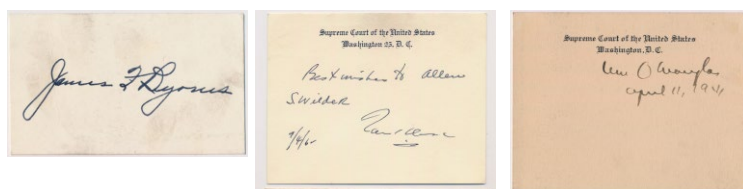 James F Byrnes
Supreme Court of the United States
Washington 25, D. C.
Best wishes to Allen
S Wilder
Supreme Court of the United States
Washington, D. C.
Wm O Douglas
April 11, 1941